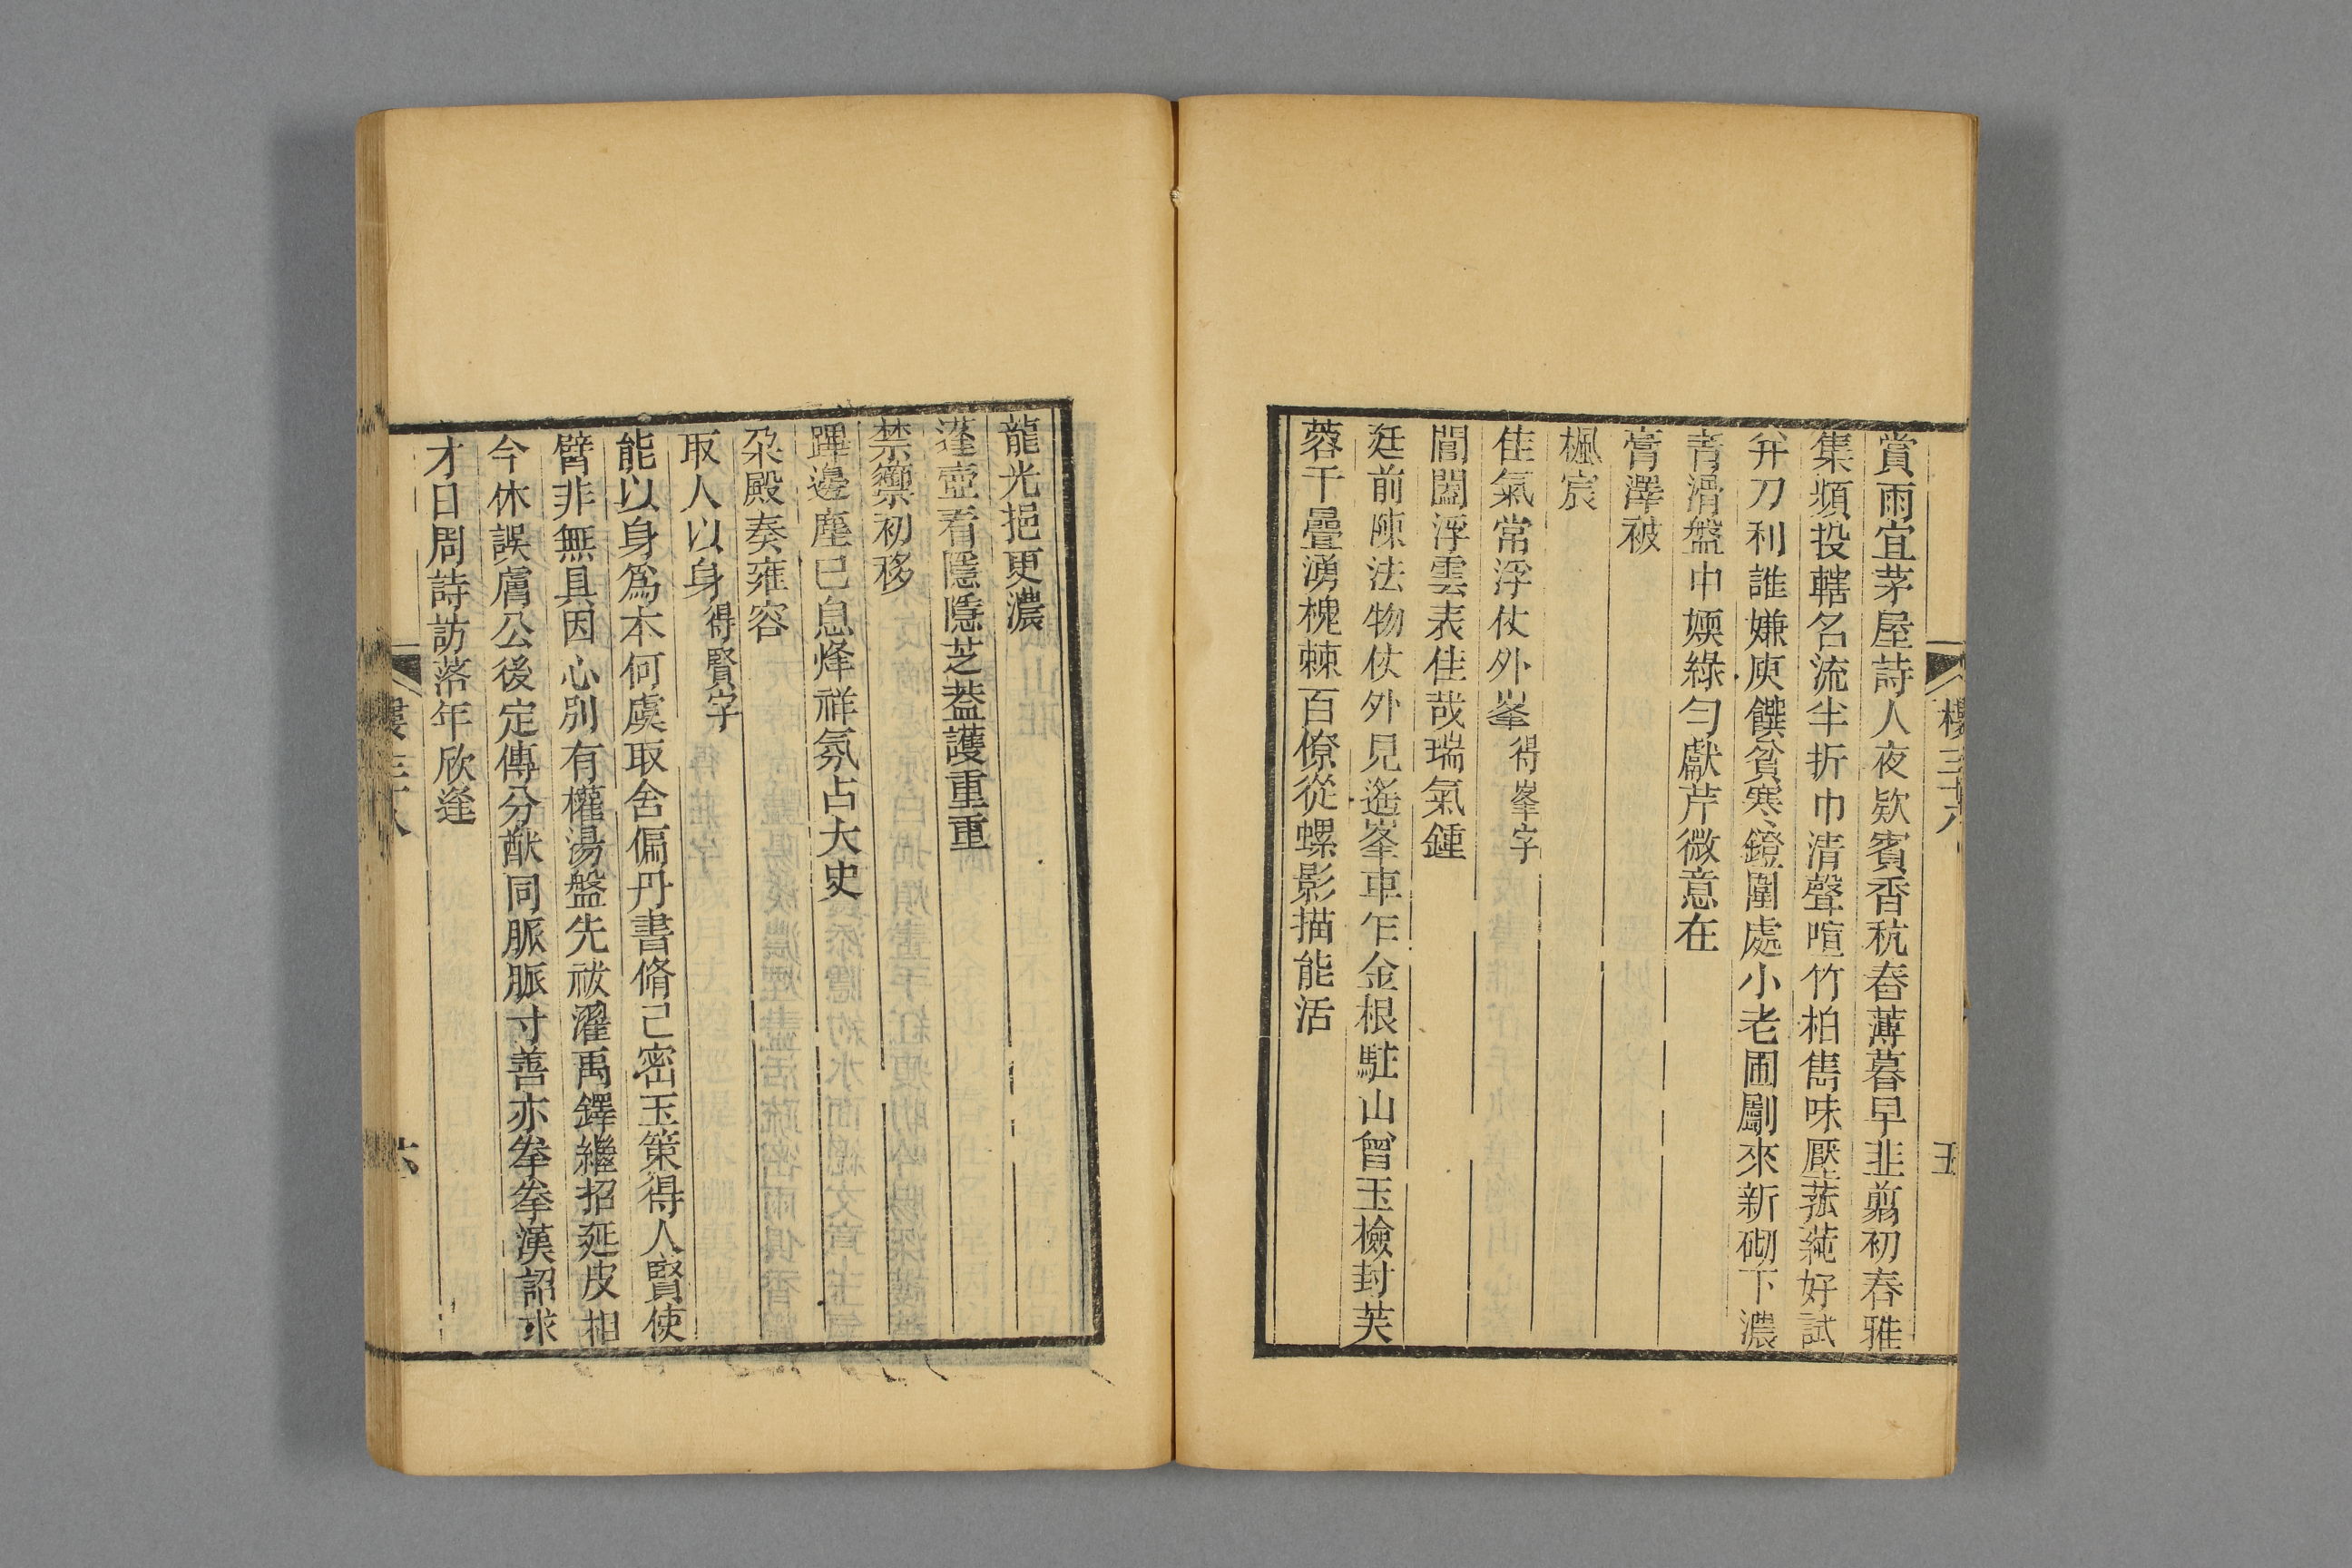 樓三十八
五
賞雨宜茅屋詩人夜欵賓香秔舂薄暮早韭翦初春雅
集頻投轄名流半折巾清聲喧竹柏雋味壓菰蒓好試
并刀利誰嫌庾饌貧寒鐙圍處小老圃劚來新砌下濃
青滑盤中嫩綠勻獻芹微意在
膏澤被
楓宸
佳氣常浮仗外峯得峯字
閶闔浮雲表佳哉瑞氣鍾
廷前陳法物仗外見遙峯車乍金根駐山曾玉檢封芙
蓉千疊湧槐棘百僚從螺影描能活
龍光挹更濃
蓬壺看隱隱芝葢護重重
禁籞初移
蹕邊塵已息烽祥氛占大史
朶殿奏雍容
取人以身得賢字
能以身爲本何虞取舍偏丹書脩己密玉策得人賢使
臂非無具因心別有權湯盤先祓濯禹鐸繼招延皮相
今休誤膚公後定傳分猷同脈脈寸善亦拳拳漢詔求
才日周詩訪落年欣逢